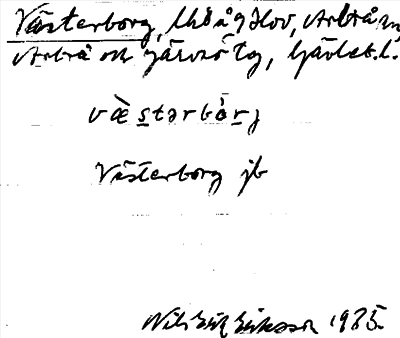 Västerborg, Arbrå sn,
Arbrå och Järvsö tg, Gävleb. l.
væ̀stərbȯrj
Västerborg jb
Nils Erik Eriksson 1935